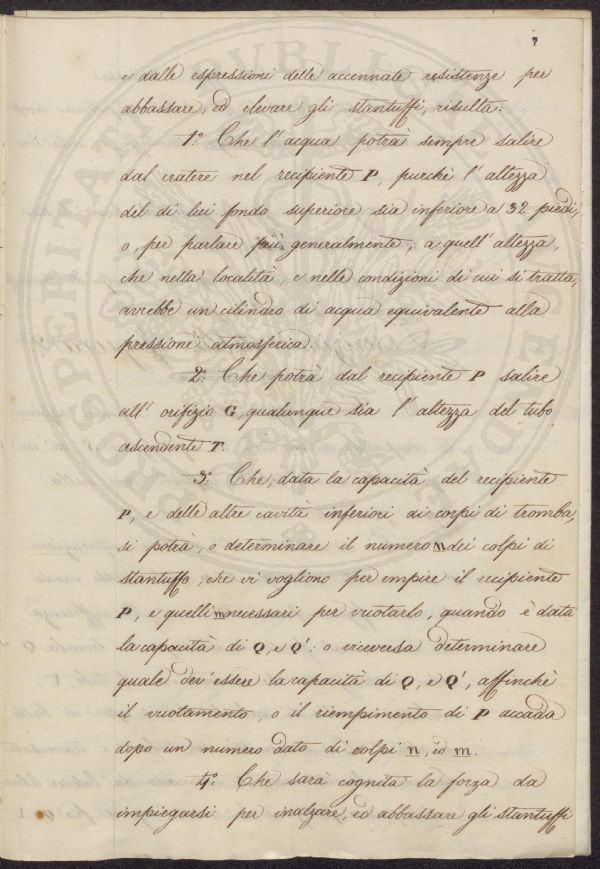 7
e dalle espressioni delle accennate resistenze per
abbassare, ed elevare gli stantuffi, risulta:
1.° Che l'acqua potrà sempre salire
dal cratere nel recipiente P, purchè l'altezza
del di lui fondo superiore sia inferiore a 32 piedi,
o, per parlare più generalmente, a quell'altezza,
che nella località, e nelle condizioni di cui si tratta,
avrebbe un cilindro di acqua equivalente alla
pressione atmosferica.
2.° Che potrà dal recipiente P salire
all'orifizio G, qualunque sia l'altezza del tubo
ascendente T.
3.° Che, data la capacità del recipiente
P, e delle altre cavità inferiori di corpi di tromba,
si potrà, o determinare il numero n dei colpi di
stantuffo, che vi vogliono per empire il recipiente
P, e quelli m necessari per vuotarlo, quando è data
la capacità di Q, e Q': o viceversa determinare
quale dev'essere la capacità di Q, e Q', affinchè
il vuotamento, o il riempimento di P accada
dopo un numero dato di colpi n, ed m.
4.° Che sarà cognita la forza da
impiegarsi per inalzare, ed abbassare gli stantuffi